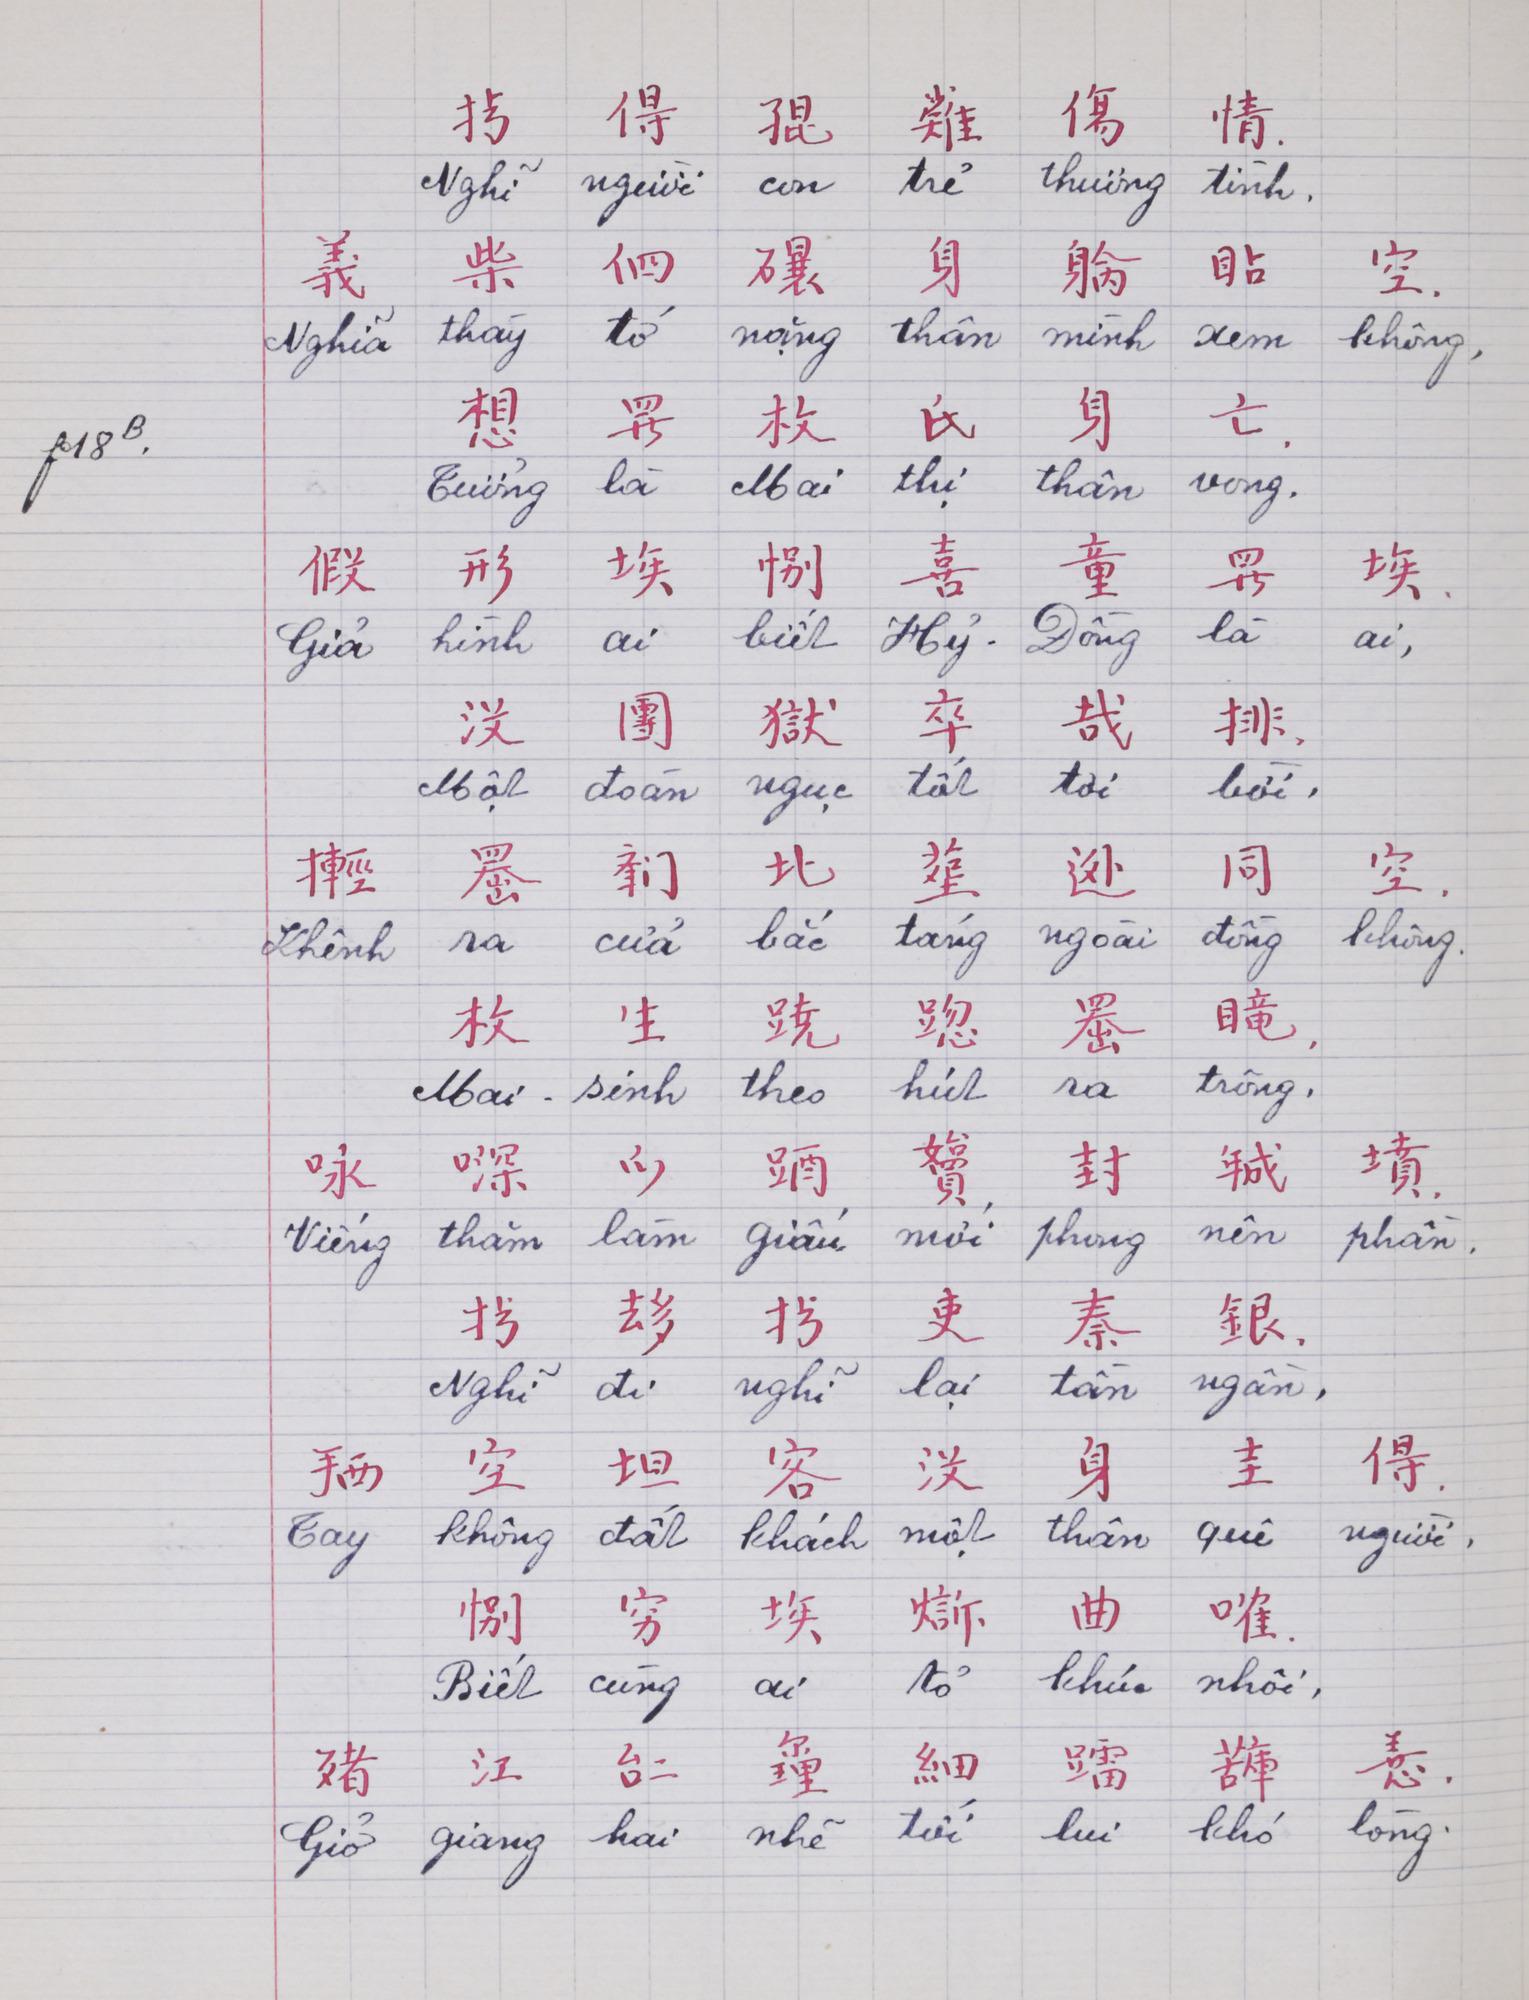 𢪀 得 𡥵 𤳢 傷 情.
Nghĩ người con trẻ thương tình.
義 柴 伵 𥗾 身 躺 䀡 空.
Nghĩa thầy tớ nặng thân mình xem không,
想 𱺵 枚 氏 身 亡.
Tưởng là Mai thị thân vong.
p18 B.
假 形 埃 別 喜 童 𱺵 埃.
Giả hình ai biết Hỷ - Đồng là ai,
沒 團 獄 卒 哉 排.
Một đoàn ngục tốt tơi bời,
𢷏 𠚢 𨷶 北 塟 外 同 空.
Khênh ra cửa bắc táng ngoài đồng không.
枚 生 蹺 𠚢 瞳.
Mai - sinh theo hút ra trông,
咏 嘇 封 墳.
Viếng thăm làm giấu mới phong nên phần.
𢪀 𠫾 𢪀 吏 秦 銀.
Nghĩ đi nghĩ lại tần ngần,
𢬣 空 坦 客 沒 身 圭 得.
Tay không đất khách một thân quê người,
別 穷 埃 𤍊 曲 㗔.
Biết cùng ai tỏ khúc nhôi,
江 𠄩 細 𨆢 𧁷
Giở giang hai nhẽ tới lui khó lòng.